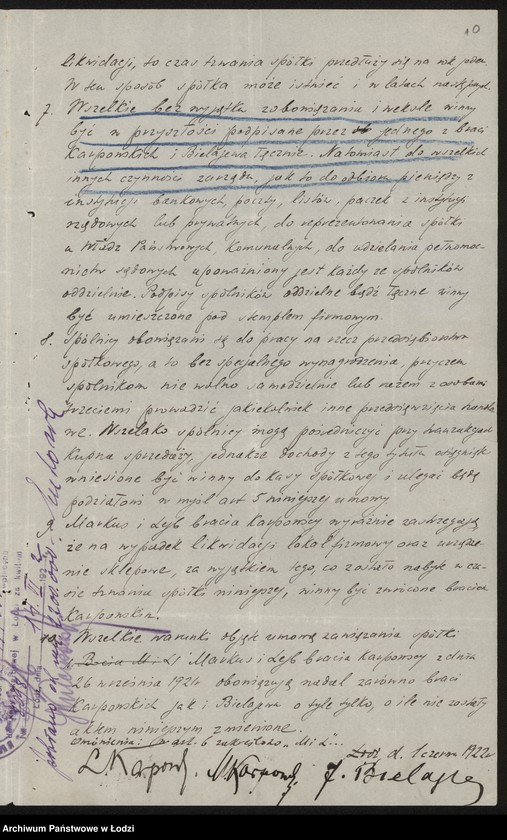 10
likwidacji, to czas trwania spółki przedłuży się na rok jeden.
W ten sposób spółka może istnieć i w latach następnych.
7. Wszelkie bez wyjątku zobowiązania i weksle winny
być w przyszłości podpisane przez jednego z braci
Karpowskich i Bielajewa łącznie. Natomiast do wszelkich
innych czynności zarządu, jak to do odbioru pieniędzy z
instytucji bankowych, poczty, listów, paczek z instytucji
rządowych lub prywatnych, do reprezentowania spółki
u Władz Państwowych, Komunalnych, do udzielania pełnomoc-
nictw sądowych upoważniony jest każdy ze spólników
oddzielnie. Podpisy spólników oddzielne bądź łączne winny
być umieszczone pod stemplem firmowym.
8. Spólnicy obowiązani są do pracy na rzecz przedsiębiorstwa
spółkowego, a to bez specjalnego wynagrodzenia, przyczem
spólnikom nie wolno samodzielnie lub razem z osobami
trzeciemi prowadzić jakiekolwiek inne przedsięwzięcia handlo
we. Wszelako spólnicy mogą pośredniczyć przy tranzakcjach
kupna sprzedaży, jednakże dochody z tego tytułu osiągnięte
wniesione być winny do kasy spółkowej i ulegać będą
podziałowi w myśl art 5 niniejszej umowy
9. Markus i Lejb bracia Karpowscy wyraźnie zastrzegają
że na wypadek likwidacji lokal firmowy oraz urządze-
nie sklepowe, za wyjątkiem tego, co zostało nabyte w cza-
sie trwania spółki niniejszej, winny być zwrócone braciom
Karpowskim.
10. Wszelkie warunki objęte umową zawiązania spółki
Markus i Lejb bracia Karpowscy z dnia
26 września 1921r obowiązują nadal zarówno braci
Karpowskich jak i Bielajewa o tyle tylko, o ile nie zostały
aktem niniejszym zmienione.
art. 6
Łódź, d. 1 czerwca 1922r
L. Karpowski M Karpowski J. Bielajew
Archiwum Państwowe w Łodzi